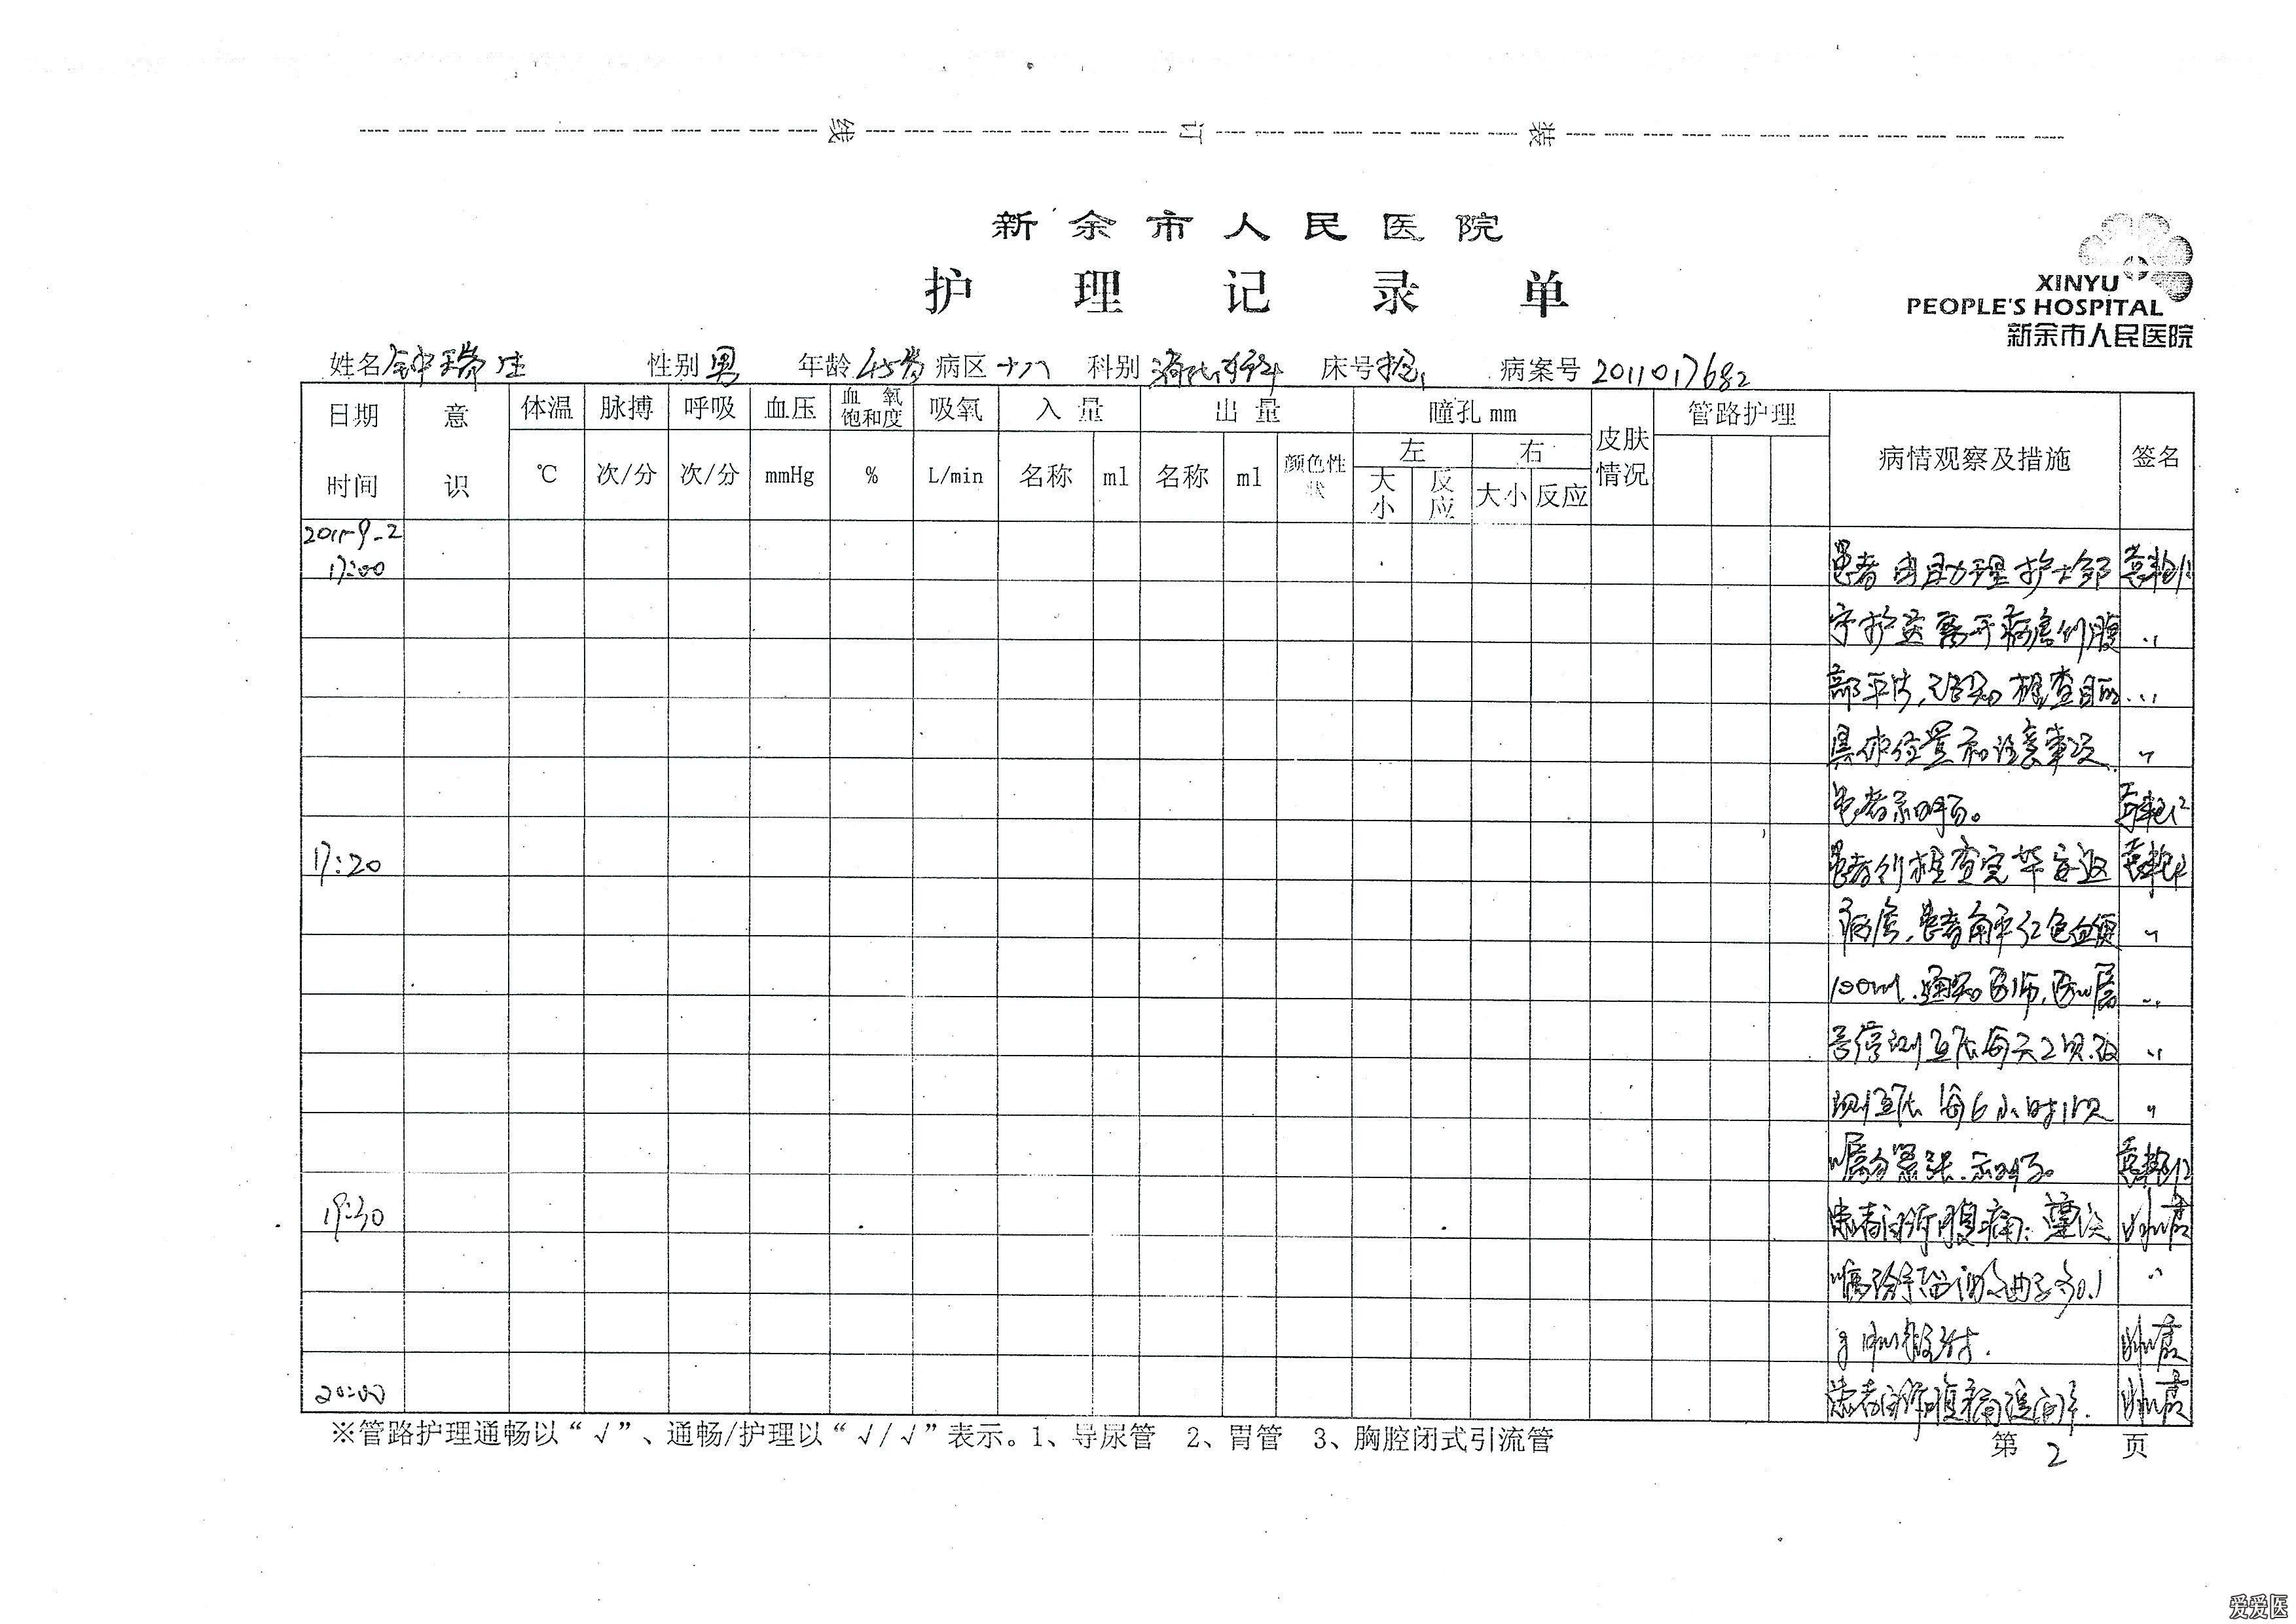 线 订 装
新余市人民医院
护理记录单
XINYU
PEOPLE'S HOSPITAL
新余市人民医院
姓名 钟瑞生 性别 男 年龄 45岁 病区 十八 科别 消化内科 床号 病案号 2011017682
日期 意 体温 脉搏 呼吸 血压 血氧饱和度 吸氧 入量 出量 瞳孔mm 皮肤情况 管路护理 病情观察及措施 签名
左 右
时间 识 ℃ 次/分 次/分 mmHg % L/min 名称 ml 名称 ml 颜色性状 大小 反应 大小 反应
2011-9-2
17:00 患者由助理护士
守护送离开病房行腹
部平片,告知检查目的
具体位置和注意事项
患者示明白。
17:20 患者行检查完毕安返
病房,患者解红色血便
100ml,通知医师,医嘱
停测血压每天2次,改
测血压每6小时1次
嘱勿紧张,示明白。
19:30 患者诉腹痛,遵医
嘱给予曲马多0.1
g im 注射.
20:00 患者诉腹痛缓解.
※管路护理通畅以“√”、通畅/护理以“√/√”表示。1、导尿管 2、胃管 3、胸腔闭式引流管
第 2 页
爱爱医